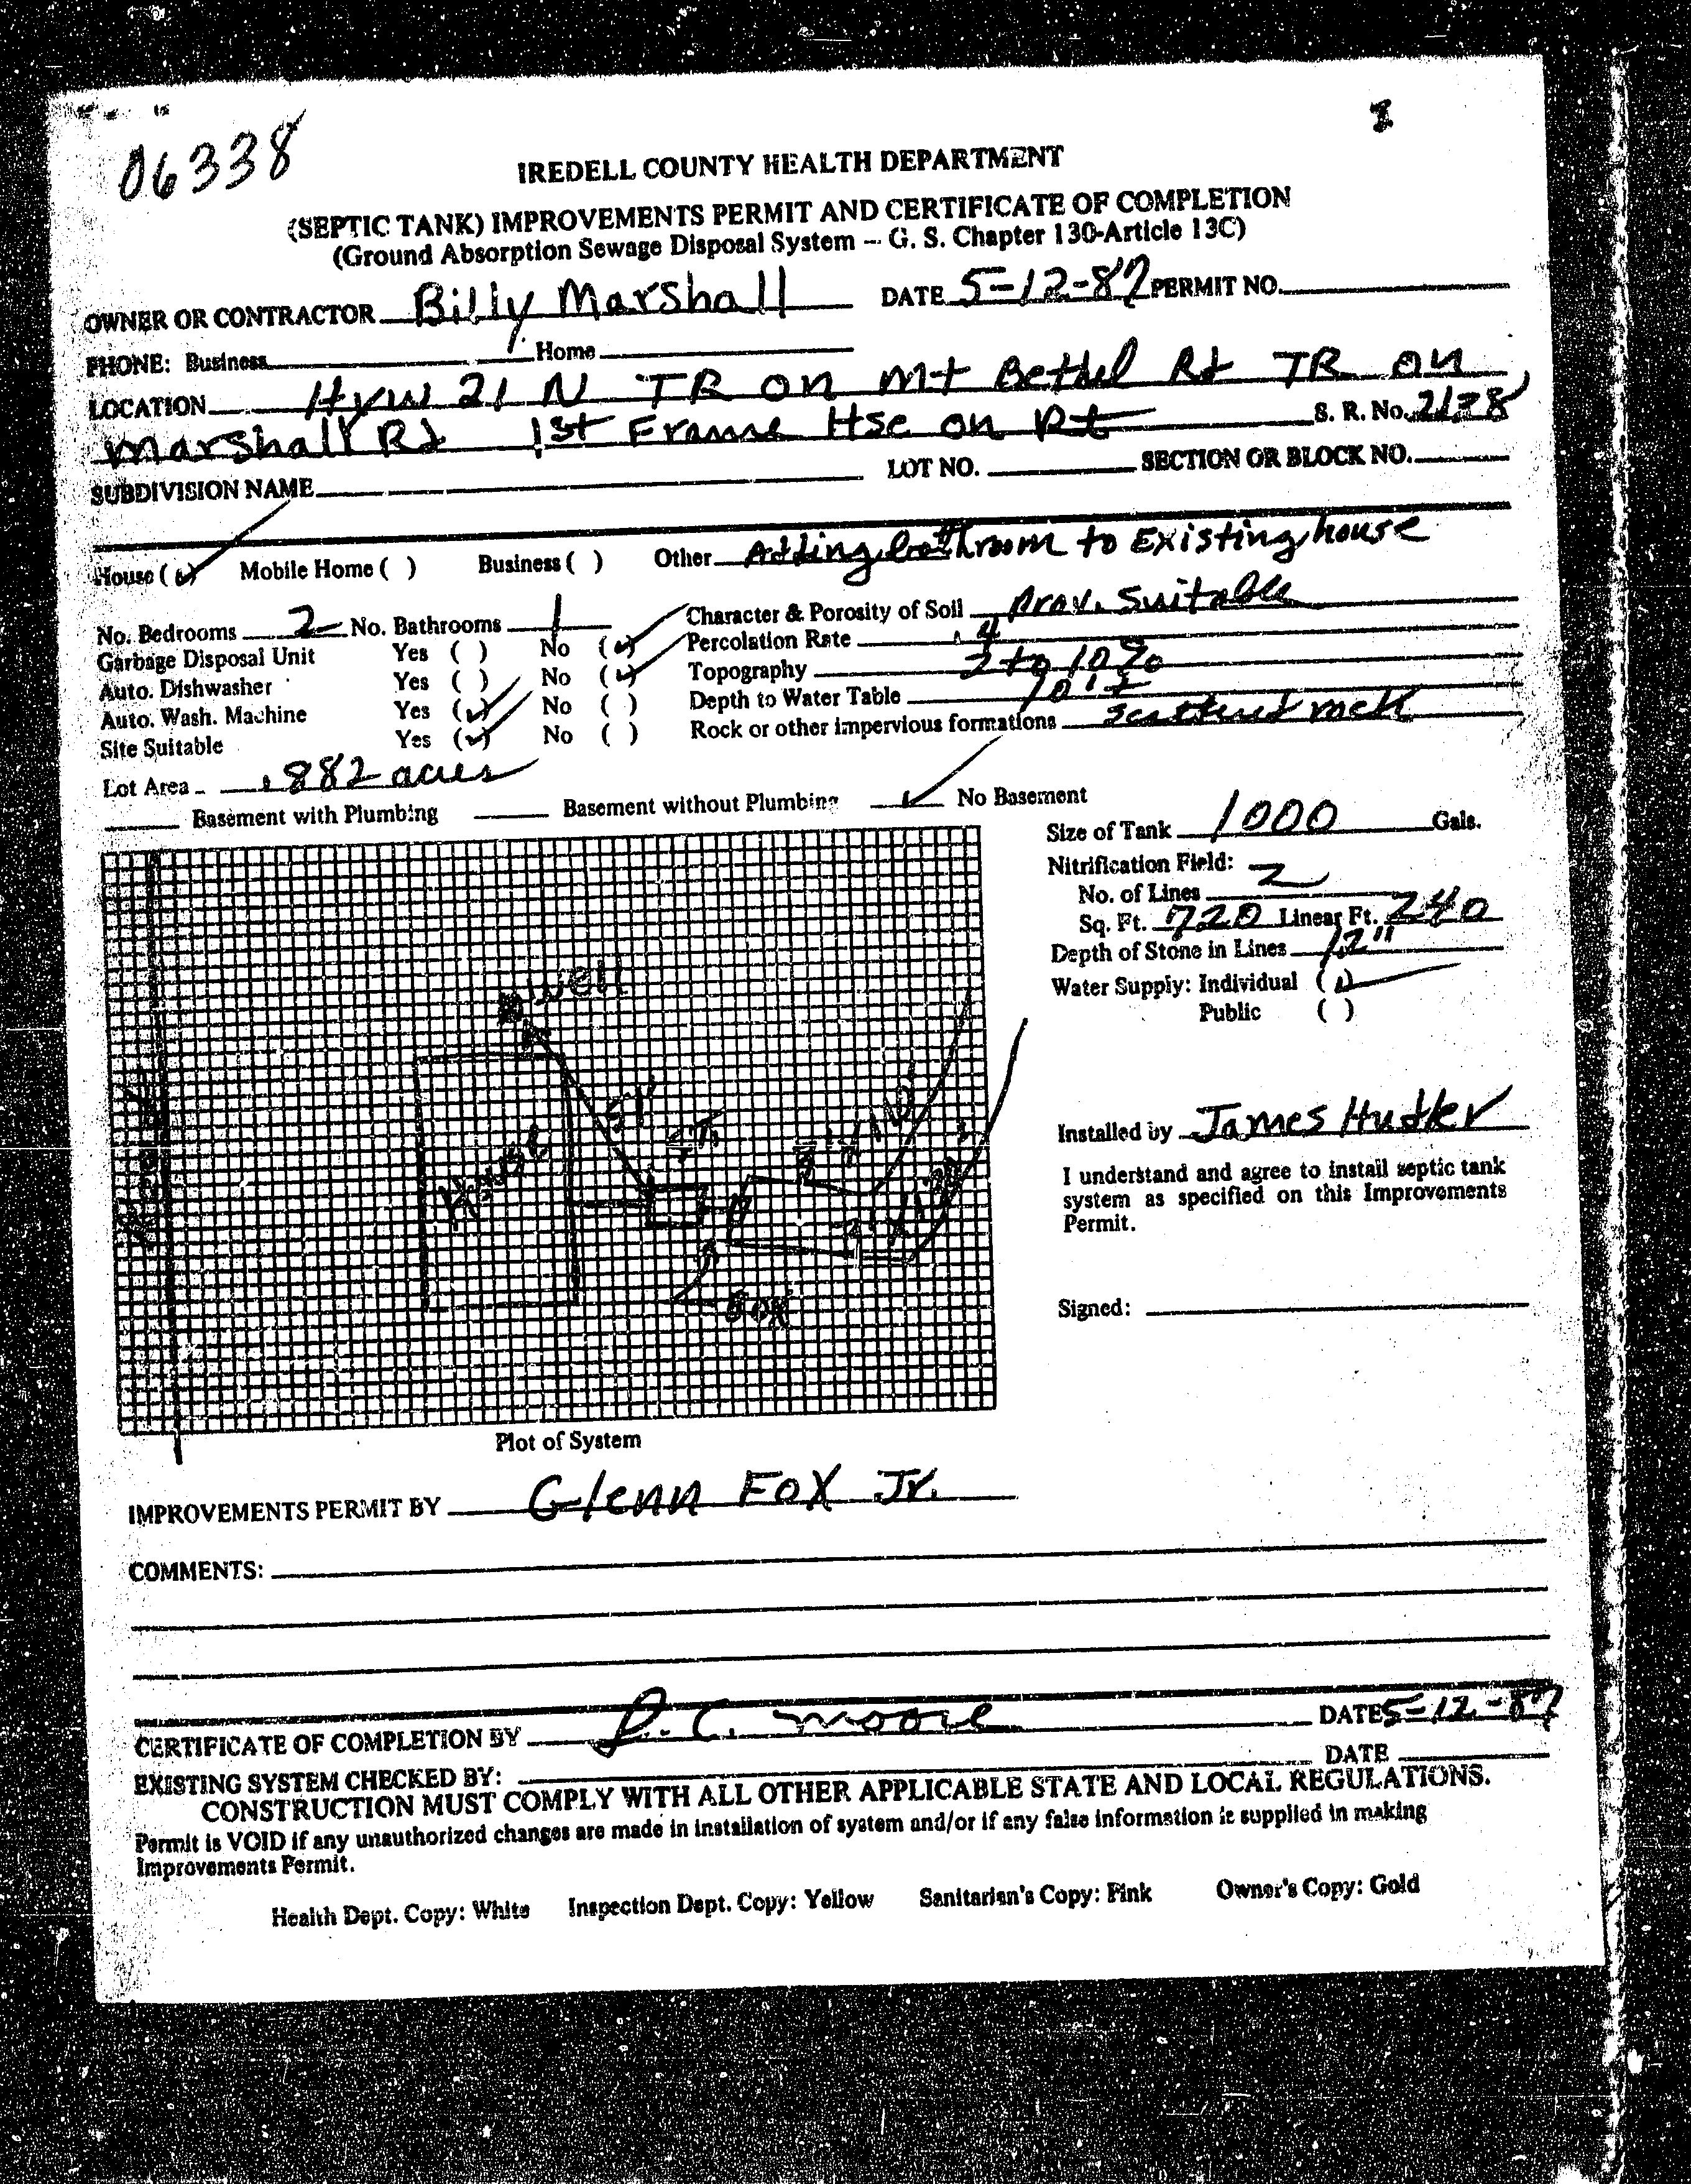 06338
IREDELL COUNTY HEALTH DEPARTMENT
(SEPTIC TANK) IMPROVEMENTS PERMIT AND CERTIFICATE OF COMPLETION
(Ground Absorption Sewage Disposal System — G. S. Chapter 130-Article 13C)
OWNER OR CONTRACTOR Billy Marshall DATE 5-12-87 PERMIT NO.
PHONE: Business Home
LOCATION Hyw 21 N TR on Mt Bethel Rd TR on
Marshall Rd 1st Frame Hse on Rt S. R. No. 2138
SUBDIVISION NAME LOT NO. SECTION OR BLOCK NO.
House (✓) Mobile Home ( ) Business ( ) Other Adding bathroom to Existing house
No. Bedrooms 2 No. Bathrooms 1 Character & Porosity of Soil Prov. Suitable
Garbage Disposal Unit Yes ( ) No (✓) Percolation Rate .4
Auto. Dishwasher Yes ( ) No (✓) Topography 2 to 10%
Auto. Wash. Machine Yes (✓) No ( ) Depth to Water Table 10'+
Site Suitable Yes (✓) No ( ) Rock or other impervious formations scattered rock
Lot Area .882 acres
Basement with Plumbing Basement without Plumbing ✓ No Basement
Size of Tank 1000 Gals.
Nitrification Field:
No. of Lines 2
Sq. Ft. 720 Linear Ft. 240
Depth of Stone in Lines 12"
Water Supply: Individual (✓)
Public ( )
well
51'
House
Box
Installed by James Hutler
I understand and agree to install septic tank
system as specified on this Improvements
Permit.
Signed:
Plot of System
IMPROVEMENTS PERMIT BY Glenn Fox Jr.
COMMENTS:
CERTIFICATE OF COMPLETION BY R. C. Moore DATE 5-12-87
EXISTING SYSTEM CHECKED BY: DATE
CONSTRUCTION MUST COMPLY WITH ALL OTHER APPLICABLE STATE AND LOCAL REGULATIONS.
Permit is VOID if any unauthorized changes are made in installation of system and/or if any false information is supplied in making
Improvements Permit.
Health Dept. Copy: White Inspection Dept. Copy: Yellow Sanitarian's Copy: Pink Owner's Copy: Gold